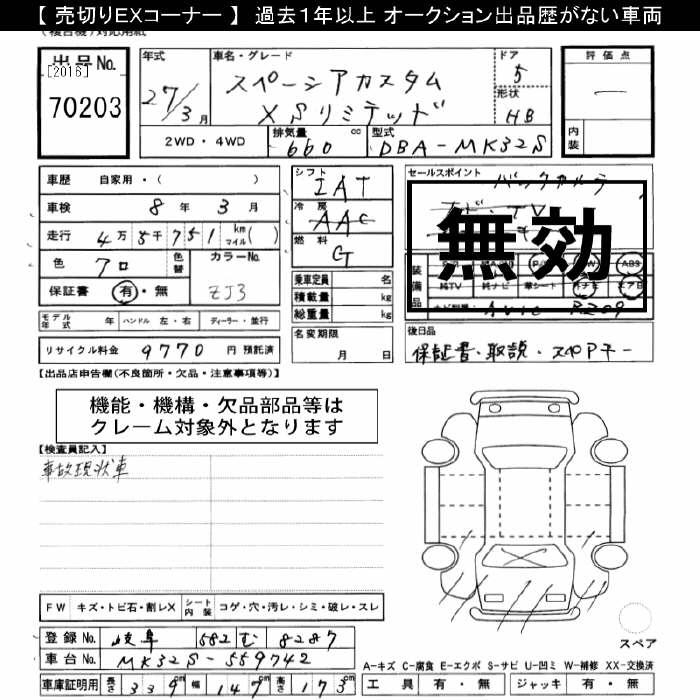 【 売切りEXコーナー 】 過去１年以上 オークション出品歴がない車両
出品No. [2016] 70203
年式 27/3月
車名・グレード スペーシアカスタム XSリミテッド
ドア 5
形状 HB
評価点 ー
内装
2WD・4WD
排気量 660 cc
型式 DBA-MK32S
車歴 自家用・( )
車検 8年 3月
走行 4万 8千 751 km マイル( )
色 クロ 色替
カラーNo. ZJ3
保証書 有・無
シフト IAT
冷房 AAC
燃料 G
乗車定員 名
積載量 kg
総重量 kg
セールスポイント
無効
装備品
AW
ABS
純TV 純ナビ 革シート 外ナビ エアB
後日品
保証書・取説・スペアキー
モデル年式 年 ハンドル 左・右 ディーラー・並行
名変期限 月 日
リサイクル料金 9770 円 預託済
【出品店申告欄(不良箇所・欠品・注意事項等)】
機能・機構・欠品部品等は
クレーム対象外となります
【検査員記入】
事故現状車
FW キズ・トビ石・割レX シート内装 コゲ・穴・汚レ・シミ・破レ・スレ
登録No. 岐阜 582 む 8287
車台No. MK32S-559742
スペア
A-キズ C-腐食 E-エクボ S-サビ U-凹ミ W-補修 XX-交換済
車庫証明用 長さ 339cm 幅 147cm 高さ 173cm
工具 有・無 ジャッキ 有・無